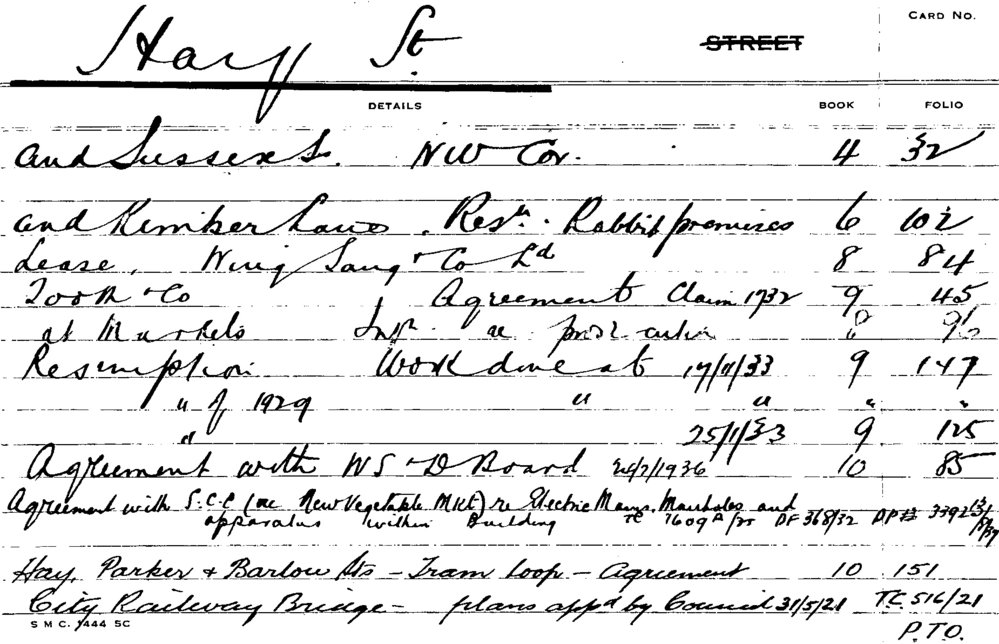 CARD No.
Hay St. STREET
DETAILS BOOK FOLIO
and Sussex St. NW Cor. 4 32
and Kimber Lane. Resn. Rabbit premises 6 102
Lease, Wing Sang & Co Ld 8 84
Tooth & Co Agreement Claim 1732 9 45
at Markets " 96
Resumption Work done at 17/11/33 9 147
" of 1929 " " " "
" 25/1/33 9 125
Agreement with WS & D Board 24/2/1936 10 85
Agreement with S.C.C (re New Vegetable Mkt) re Electric Mains, Manholes and
apparatus within Building TC 7609A/35 DF 368/32 DP 3392
Hay, Parker & Barlow Sts - Tram Loop - Agreement 10 151
City Railway Bridge - plans appd by Council 31/5/21 T.C. 516/21
S M C. 1444 5C
P.T.O.